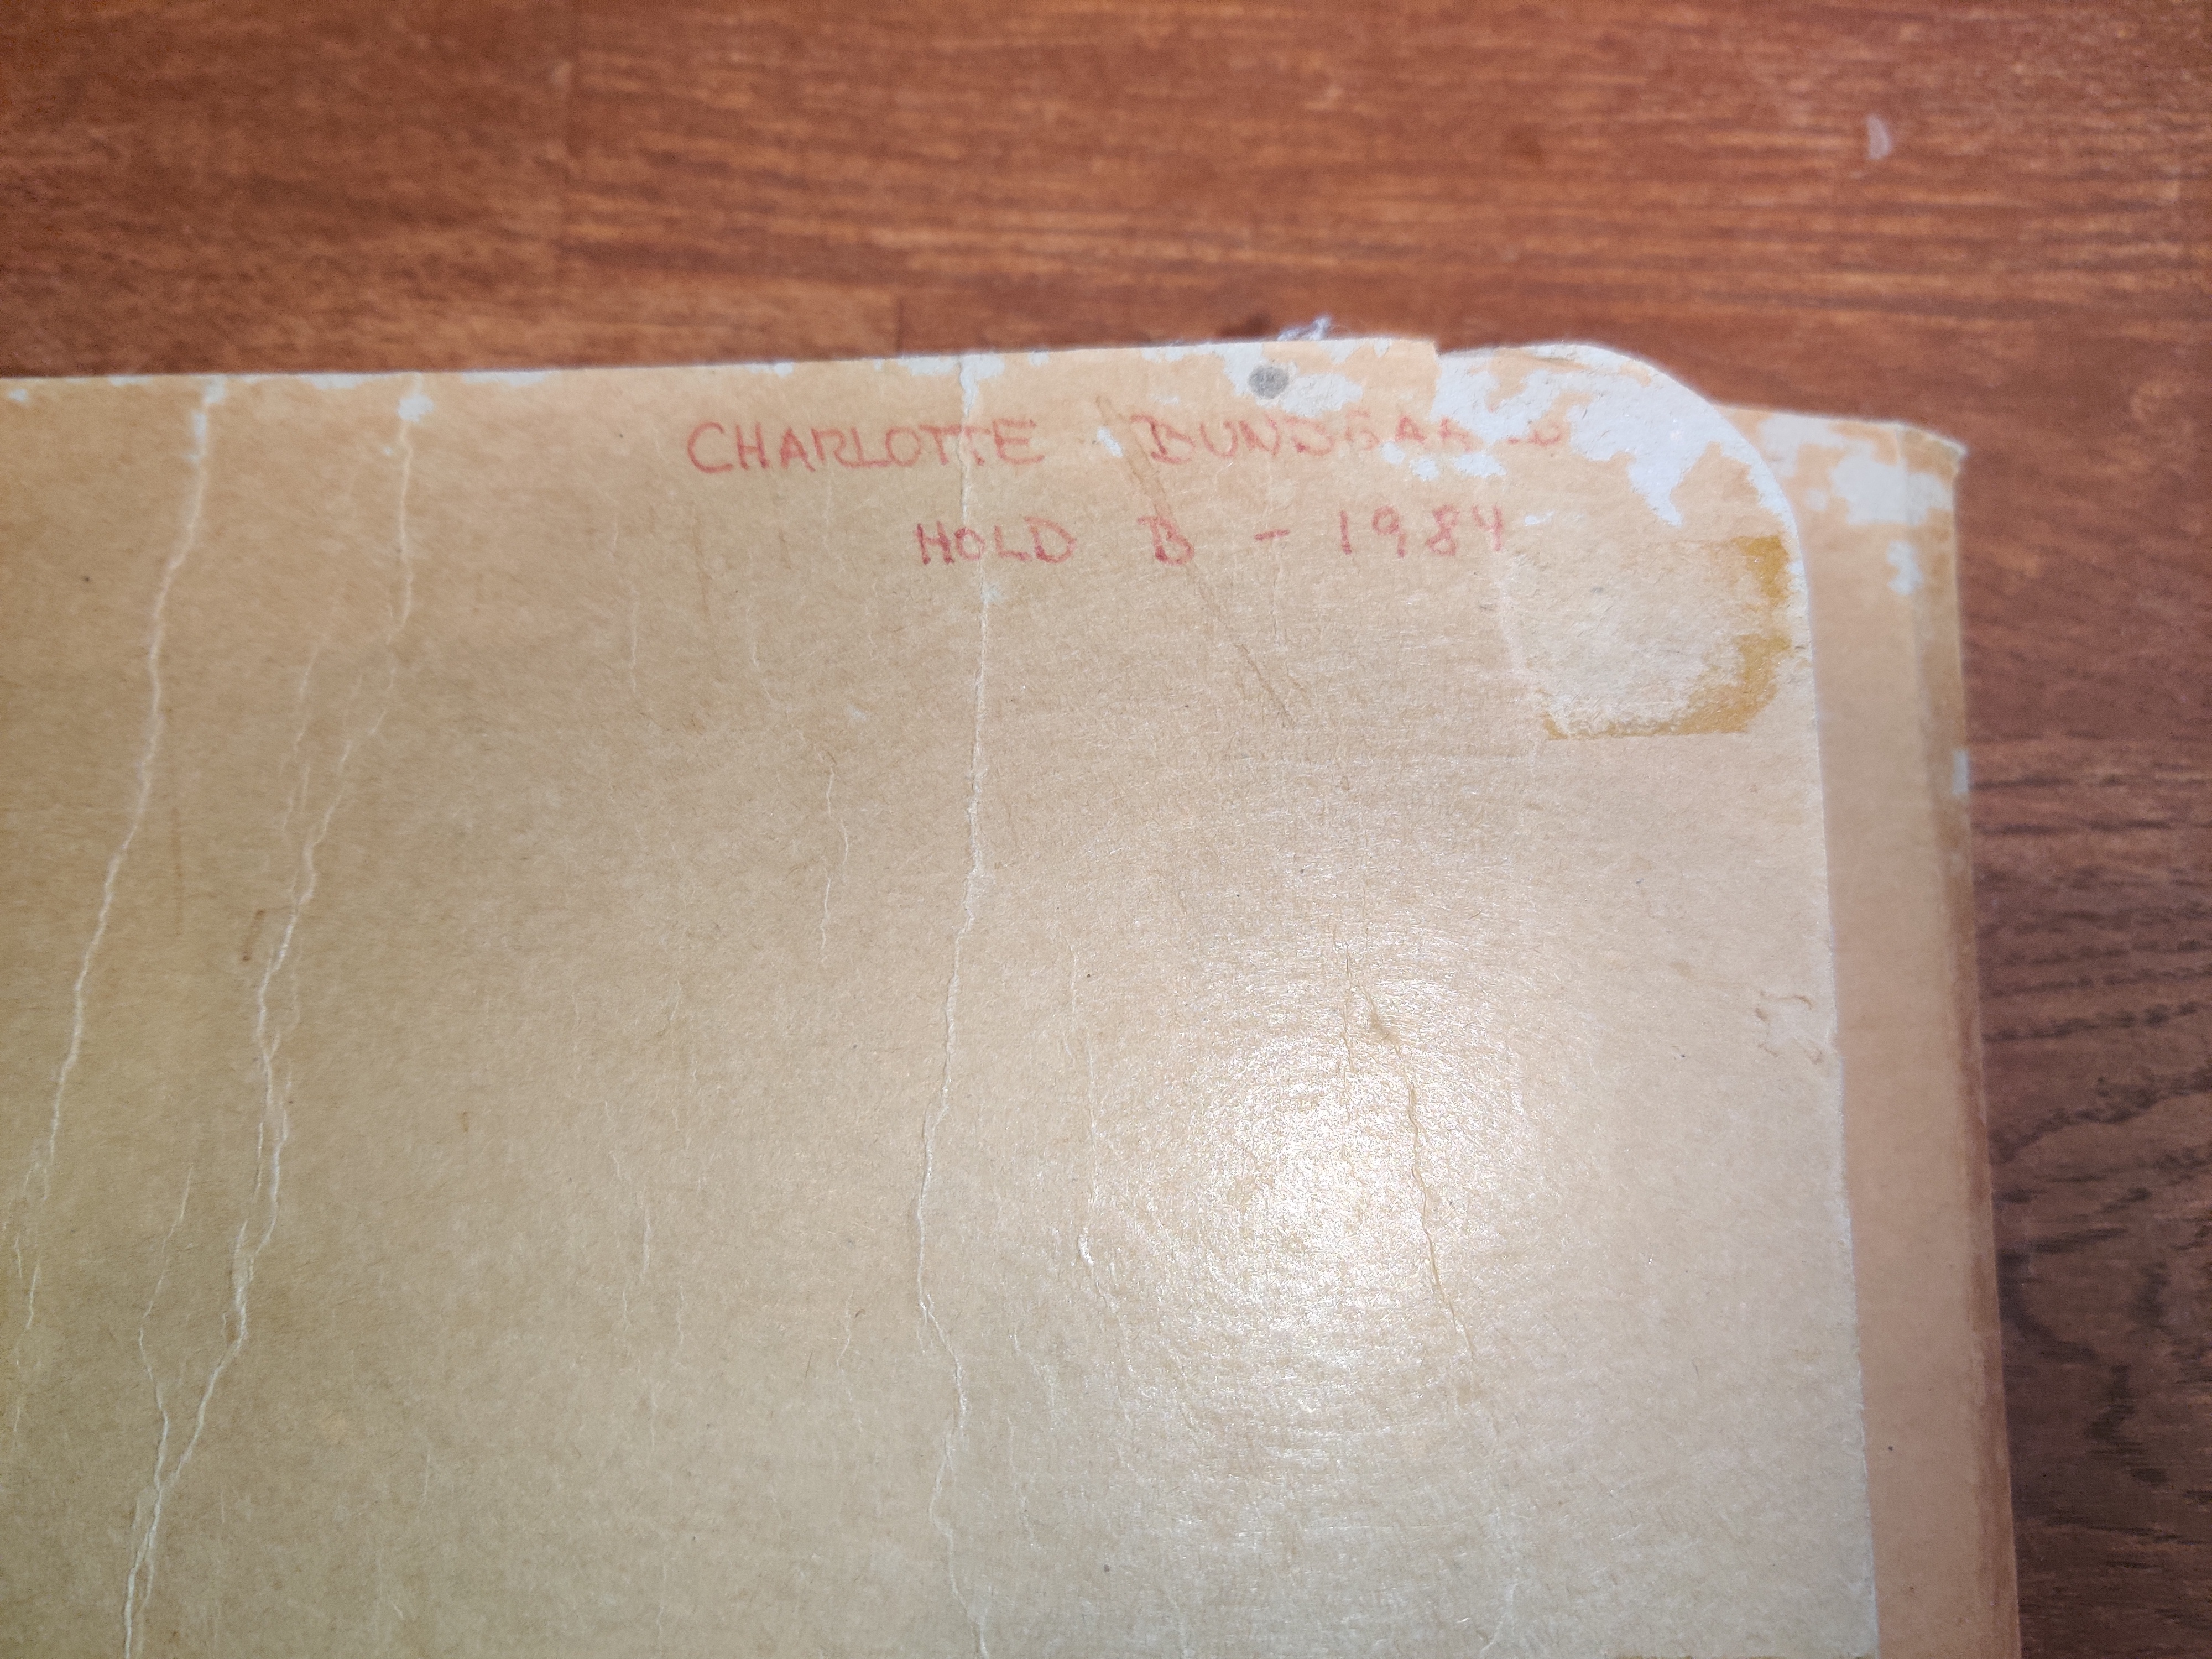 CHARLOTTE BUNDGAARD
HOLD B - 1984